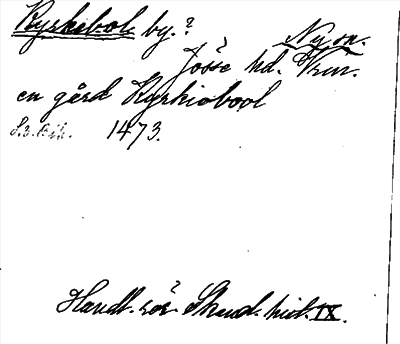 Kyrkebol by.?
Ny sn.
Jösse hd. Vrm.
en gård Kyrkiobool
1473.
Handl. rör. Skand. hist. IX.